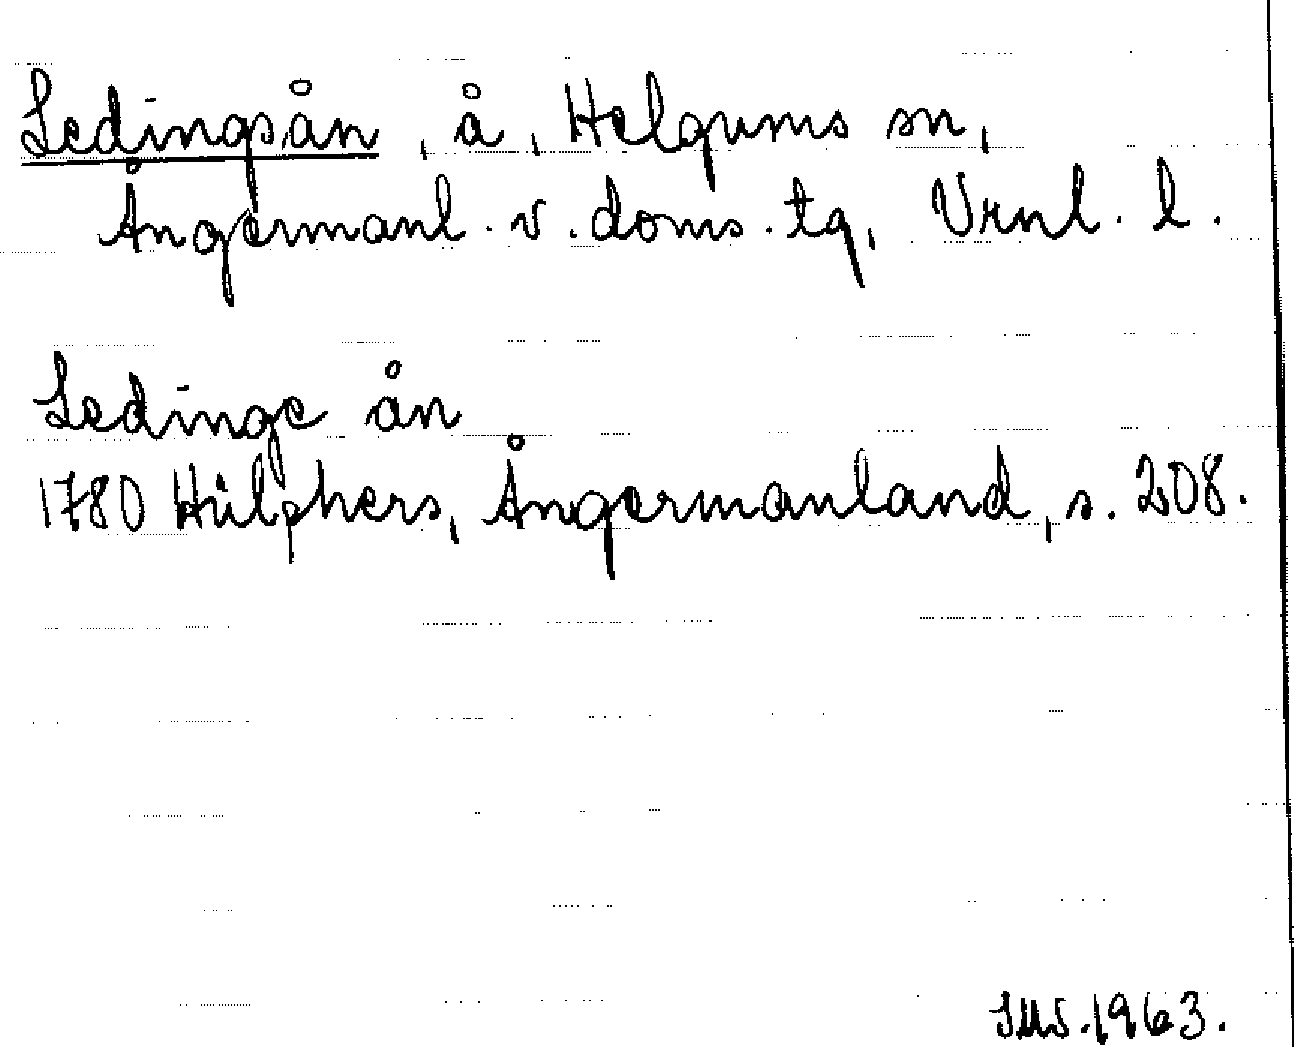 Ledingsån, å, Helgums sn,
Ångermanl. v. doms. tg, Vrnl. l.
Ledinge ån
1780 Hülphers, Ångermanland, s. 208.
1963.